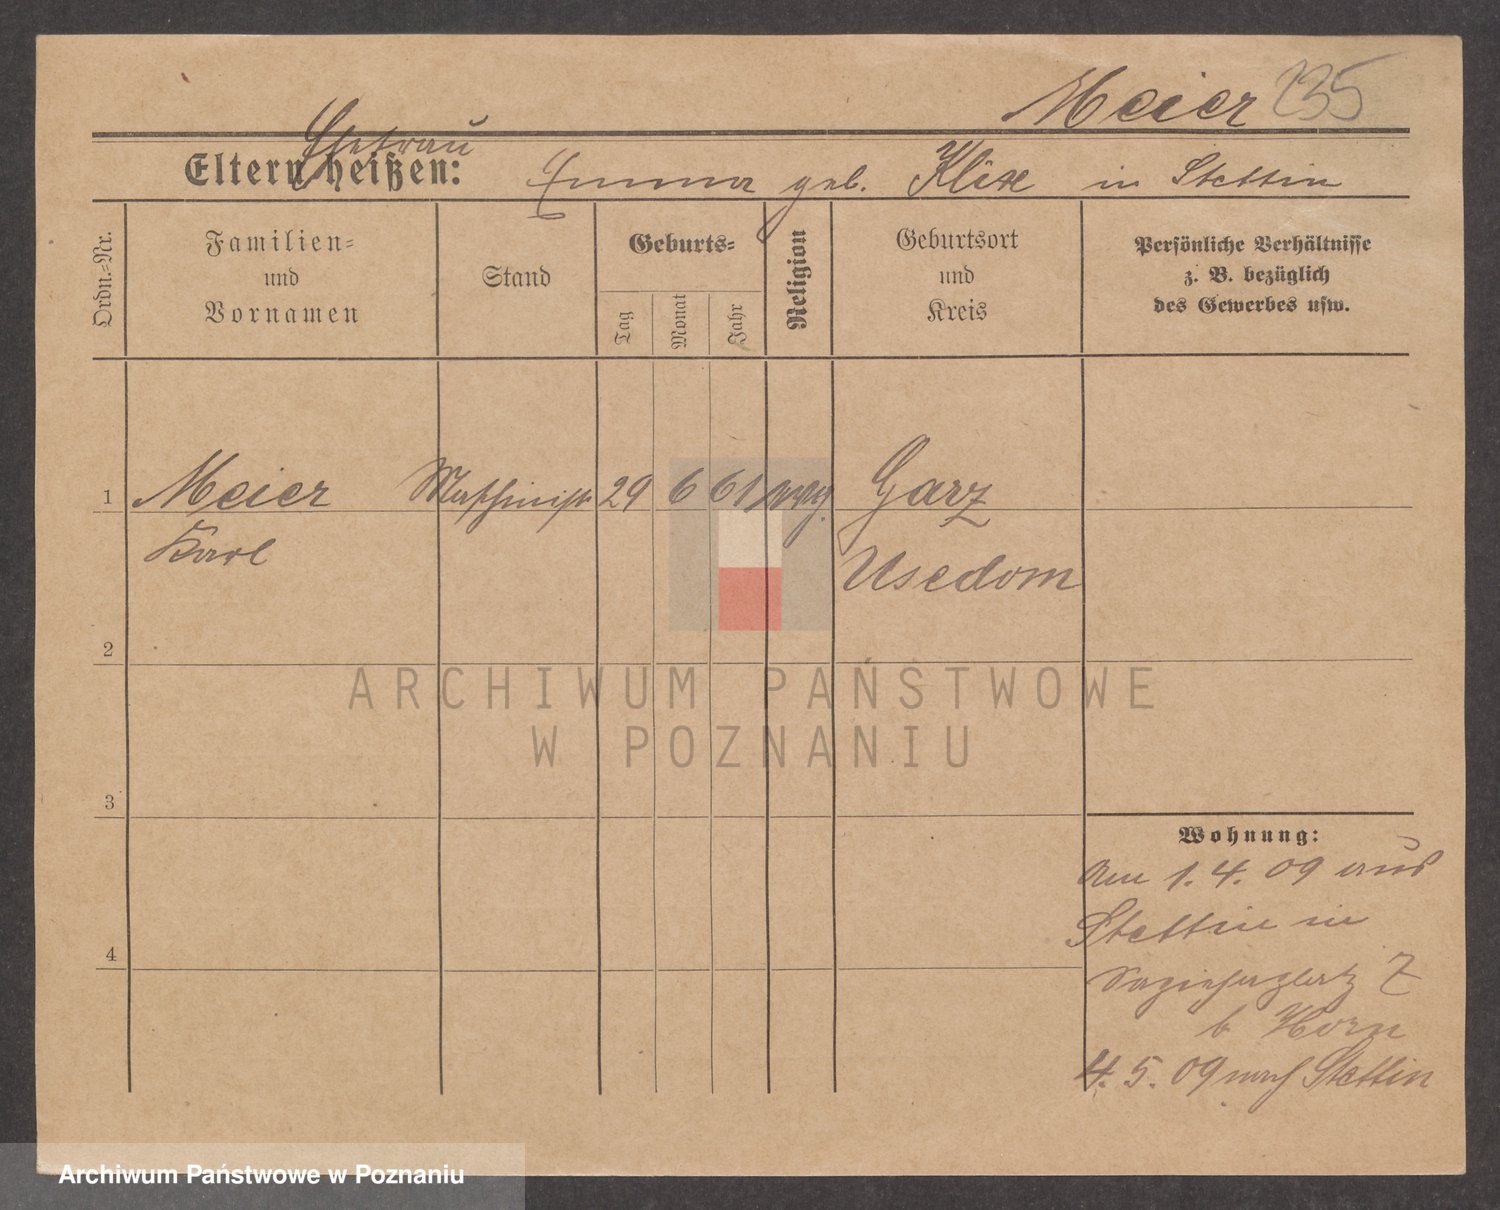 Meier 235
Ehefrau
Eltern heißen: Emma geb. Klix in Stettin
Ordn.-Nr.
Familien-
und
Vornamen
Stand
Geburts-
Tag
Monat
Jahr
Religion
Geburtsort
und
Kreis
Persönliche Verhältnisse
z. B. bezüglich
des Gewerbes usw.
1 Meier Maschinist 29 6 61 evg. Garz
Karl Usedom
2
ARCHIWUM PAŃSTWOWE
W POZNANIU
3
Wohnung:
Am 1. 4. 09 aus
Stettin in
4
7
b Horn
4. 5. 09 nach Stettin
Archiwum Państwowe w Poznaniu